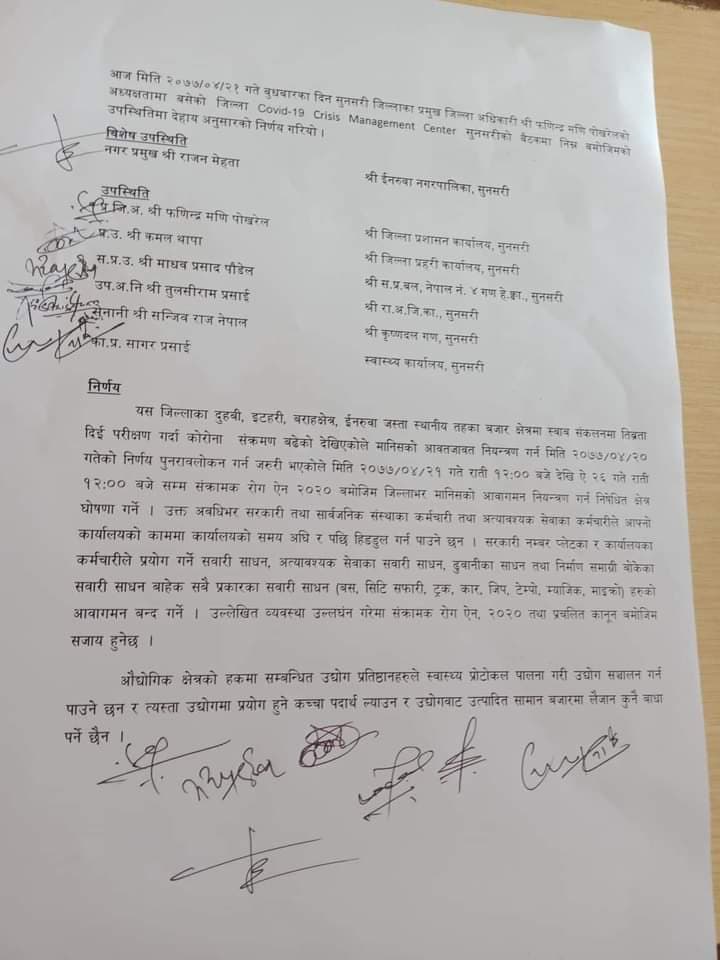 आज मिति २०७७/०४/२१ गते बुधबारका दिन सुनसरी जिल्लाका प्रमुख जिल्ला अधिकारी श्री फणिन्द्र मणि पोखरेलको
अध्यक्षतामा बसेको जिल्ला Covid-19 Crisis Management Center सुनसरीको बैठकमा निम्न बमोजिमको
उपस्थितिमा देहाय अनुसारको निर्णय गरियो ।
विशेष उपस्थिति
नगर प्रमुख श्री राजन मेहता श्री ईनरुवा नगरपालिका, सुनसरी
उपस्थिति
प्र.जि.अ. श्री फणिन्द्र मणि पोखरेल श्री जिल्ला प्रशासन कार्यालय, सुनसरी
प्र.उ. श्री कमल थापा श्री जिल्ला प्रहरी कार्यालय, सुनसरी
स.प्र.उ. श्री माधव प्रसाद पौडेल श्री स.प्र.बल, नेपाल नं. ४ गण हे.क्वा., सुनसरी
उप.अ.नि श्री तुलसीराम प्रसाई श्री रा.अ.जि.का., सुनसरी
सेनानी श्री सन्जिव राज नेपाल श्री कृष्णदल गण, सुनसरी
का.प्र. सागर प्रसाई स्वास्थ्य कार्यालय, सुनसरी
निर्णय
यस जिल्लाका दुहबी, इटहरी, बराहक्षेत्र, ईनरुवा जस्ता स्थानीय तहका बजार क्षेत्रमा स्वाब संकलनमा तिब्रता
दिई परीक्षण गर्दा कोरोना संक्रमण बढेको देखिएकोले मानिसको आवतजावत नियन्त्रण गर्न मिति २०७७/०४/२०
गतेको निर्णय पुनरावलोकन गर्न जरुरी भएकोले मिति २०७७/०४/२१ गते राती १२:०० बजे देखि ऐ २६ गते राती
१२:०० बजे सम्म संक्रामक रोग ऐन २०२० बमोजिम जिल्लाभर मानिसको आवागमन नियन्त्रण गर्न निषेधित क्षेत्र
घोषणा गर्ने । उक्त अवधिभर सरकारी तथा सार्वजनिक संस्थाका कर्मचारी तथा अत्यावश्यक सेवाका कर्मचारीले आफ्नो
कार्यालयको काममा कार्यालयको समय अघि र पछि हिडडुल गर्न पाउने छन । सरकारी नम्बर प्लेटका र कार्यालयका
कर्मचारीले प्रयोग गर्ने सवारी साधन, अत्यावश्यक सेवाका सवारी साधन, ढुवानीका साधन तथा निर्माण समाग्री बोकेका
सवारी साधन बाहेक सवै प्रकारका सवारी साधन (बस, सिटि सफारी, ट्रक, कार, जिप, टेम्पो, म्याजिक, माइक्रो) हरुको
आवागमन बन्द गर्ने । उल्लेखित व्यवस्था उल्लघंन गरेमा संक्रामक रोग ऐन, २०२० तथा प्रचलित कानून बमोजिम
सजाय हुनेछ ।
औद्योगिक क्षेत्रको हकमा सम्बन्धित उद्योग प्रतिष्ठानहरुले स्वास्थ्य प्रोटोकल पालना गरी उद्योग सञ्चालन गर्न
पाउने छन र त्यस्ता उद्योगमा प्रयोग हुने कच्चा पदार्थ ल्याउन र उद्योगवाट उत्पादित सामान बजारमा लैजान कुनै बाधा
पर्ने छैन ।